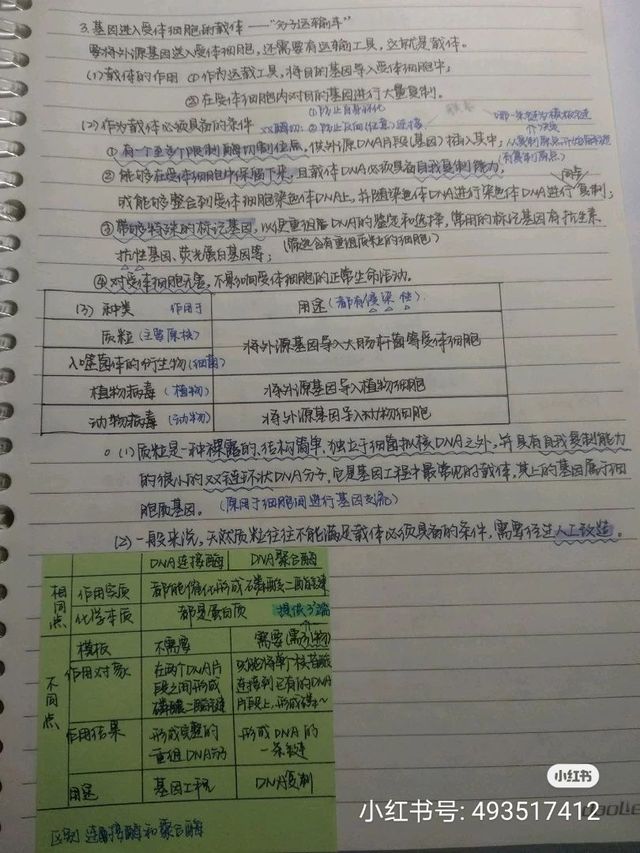 3.基因进入受体细胞的载体——"分子运输车"
要将外源基因送入受体细胞,还需要有运输工具,这就是载体。
(1)载体的作用 ①作为运载工具,将目的基因导入受体细胞中;
②在受体细胞内对目的基因进行大量复制。
①防止自身环化
(2)作为载体必须具备的条件 双酶切:②防止反向(任意)连接
①有一个至多个限制酶切割位点,供外源DNA片段(基因)插入其中;
②能够在受体细胞中保留下来,且载体DNA必须具备自我复制能力,
(有复制原点)
同步
或能够整合到受体细胞染色体DNA上,并随染色体DNA进行染色体DNA进行复制;
③带有特殊的标记基因,以便重组后DNA的鉴定和选择,常用的标记基因有抗生素
抗性基因、荧光蛋白基因等;(筛选含有重组质粒的细胞)
④对受体细胞无害,不影响受体细胞的正常生命活动。
(3)种类 作用于 用途(都有侵染性)
质粒(主要原核) 将外源基因导入大肠杆菌等受体细胞
λ噬菌体的衍生物(细菌)
植物病毒(植物) 将外源基因导入植物细胞
动物病毒(动物) 将外源基因导入动物细胞
(1)质粒是一种裸露的、结构简单、独立于细菌拟核DNA之外,并具有自我复制能力
的很小的双链环状DNA分子,它是基因工程中最常见的载体,其上的基因属于细
胞质基因。(原用于细胞间进行基因交流)
(2)一般来说,天然质粒往往不能满足载体必须具备的条件,需要经过人工改造。
DNA连接酶 DNA聚合酶
相同点 作用实质 都能催化形成磷酸二酯键
化学本质 都是蛋白质 提供3'端
不同点 模板 不需要 需要(需引物)
作用对象 在两个DNA片段之间形成磷酸二酯键 只能将单个核苷酸连接到已有的DNA片段上,形成磷~
作用结果 形成完整的重组DNA分子 形成DNA的一条链
用途 基因工程 DNA复制
区别 连接酶和聚合酶
小红书
小红书号: 493517412